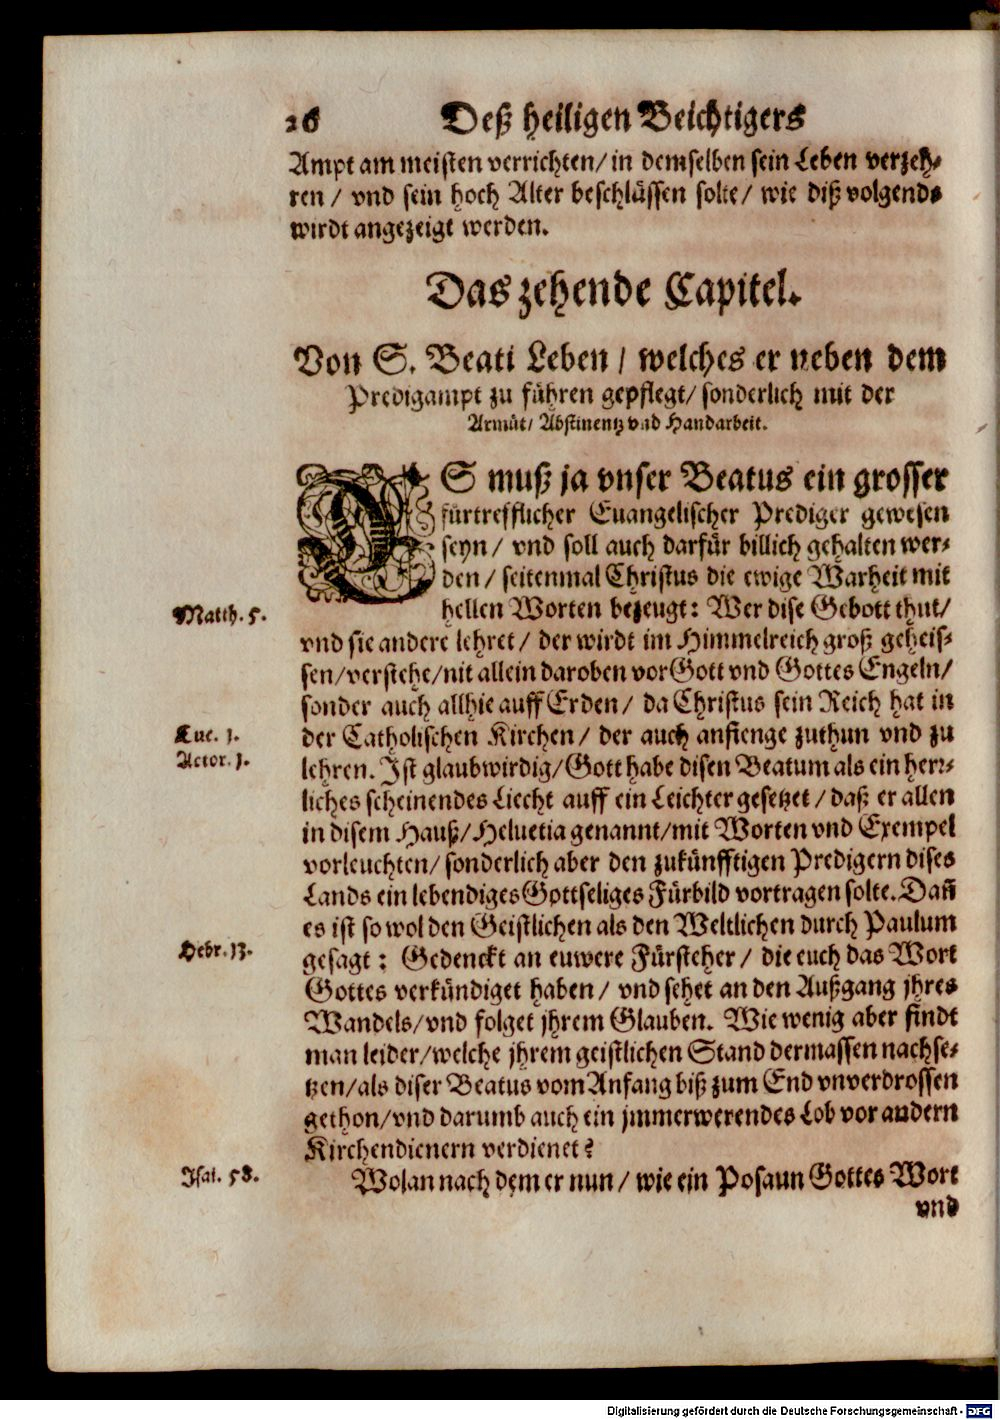 26 Deß heiligen Beichtigers
Ampt am meisten verrichten/ in demselben sein Leben verzeh-
ren / vnd sein hoch Alter beschlüssen solte/ wie diß volgends
wirdt angezeigt werden.
Das zehende Capitel.
Von S. Beati Leben / welches er neben dem
Predigampt zu führen gepflegt/ sonderlich mit der
Armůt/ Abstinentz vnd Handarbeit.
ES muß ja vnser Beatus ein grosser
fürtrefflicher Euangelischer Prediger gewesen
seyn / vnd soll auch darfür billich gehalten wer-
den / seitenmal Christus die ewige Warheit mit
hellen Worten bezeugt: Wer dise Gebott thut/
Matth. 5.
vnd sie andere lehret / der wirdt im Himmelreich groß geheis-
sen/verstehe/nit allein daroben vor Gott vnd Gottes Engeln/
sonder auch allhie auff Erden / da Christus sein Reich hat in
Luc. 1.
der Catholischen Kirchen / der auch anfienge zuthun vnd zu
Actor. 1.
lehren. Ist glaubwirdig/ Gott habe disen Beatum als ein herr-
liches scheinendes Liecht auff ein Leichter gesetzet / daß er allen
in disem Hauß/ Heluetia genannt/mit Worten vnd Exempel
vorleuchten/ sonderlich aber den zukünfftigen Predigern dises
Lands ein lebendiges Gottseliges Fürbild vortragen solte. Dañ
es ist so wol den Geistlichen als den Weltlichen durch Paulum
Hebr. 13.
gesagt : Gedenckt an euwere Fürsteher / die euch das Wort
Gottes verkündiget haben / vnd sehet an den Außgang jhres
Wandels/vnd folget jhrem Glauben. Wie wenig aber findt
man leider/welche jhrem geistlichen Stand dermassen nachse-
tzen/als diser Beatus vom Anfang biß zum End vnverdrossen
gethon/vnd darumb auch ein jmmerwerendes Lob vor andern
Kirchendienern verdienet?
Isai. 58.
Wolan nach dem er nun / wie ein Posaun Gottes Wort
vnd
Digitalisierung gefördert durch die Deutsche Forschungsgemeinschaft - DFG